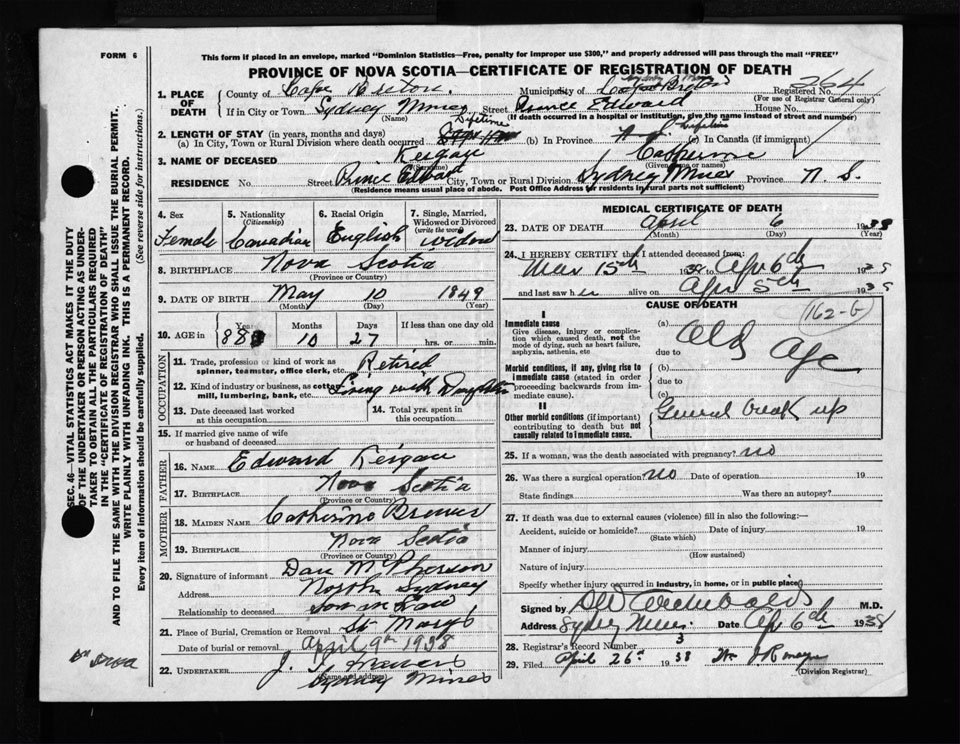 FORM 6
This form if placed in an envelope, marked "Dominion Statistics—Free, penalty for improper use $300," and properly addressed will pass through the mail "FREE"
PROVINCE OF NOVA SCOTIA—CERTIFICATE OF REGISTRATION OF DEATH
1. PLACE OF DEATH
County of Cape Breton Municipality of Cape Breton Registered No. 264
(For use of Registrar General only)
If in City or Town Sydney Mines Street Prince Edward House No.
(Name) (If death occurred in a hospital or institution, give the name instead of street and number)
2. LENGTH OF STAY (in years, months and days)
(a) In City, Town or Rural Division where death occurred Lifetime (b) In Province Lifetime (c) In Canada (if immigrant)
3. NAME OF DECEASED Keigan Catherine
(Surname) (Given name or names)
RESIDENCE No. Street Prince Edward City, Town or Rural Division Sydney Mines Province N. S.
(Residence means usual place of abode. Post Office Address for residents in rural parts not sufficient)
4. Sex Female
5. Nationality (Citizenship) Canadian
6. Racial Origin English
7. Single, Married, Widowed or Divorced (write the word) widow
8. BIRTHPLACE Nova Scotia
(Province or Country)
9. DATE OF BIRTH May 10 1849
(Month) (Day) (Year)
10. AGE in Years 88 Months 10 Days 27 If less than one day old hrs. or min.
OCCUPATION
11. Trade, profession or kind of work as spinner, teamster, office clerk, etc. Retired
12. Kind of industry or business, as cotton mill, lumbering, bank, etc. Living with Daughter
13. Date deceased last worked at this occupation
14. Total yrs. spent in this occupation
15. If married give name of wife or husband of deceased
FATHER
16. NAME Edward Keigan
17. BIRTHPLACE Nova Scotia
(Province or Country)
MOTHER
18. MAIDEN NAME Catherine
19. BIRTHPLACE Nova Scotia
(Province or Country)
20. Signature of informant Dan McPherson
Address North Sydney
Relationship to deceased Son in Law
21. Place of Burial, Cremation or Removal St Marys
Date of burial or removal April 9th 1938
22. UNDERTAKER J.
(Name and address)
Sydney Mines
MEDICAL CERTIFICATE OF DEATH
23. DATE OF DEATH April 6 1938
(Month) (Day) (Year)
24. I HEREBY CERTIFY that I attended deceased from:
Mar 15th 1938 to Apr 6th 1938
and last saw her alive on Apr 5th 1938
CAUSE OF DEATH
162-G
I
Immediate cause
Give disease, injury or complication which caused death, not the mode of dying, such as heart failure, asphyxia, asthenia, etc
(a) Old Age
due to
Morbid conditions, if any, giving rise to immediate cause (stated in order of proceeding backwards from immediate cause).
(b)
due to
(c)
II
Other morbid conditions (if important) contributing to death but not causally related to Immediate cause.
General break up
25. If a woman, was the death associated with pregnancy? no
26. Was there a surgical operation? no Date of operation 19
State findings Was there an autopsy?
27. If death was due to external causes (violence) fill in also the following:—
Accident, suicide or homicide? Date of injury 19
(State which)
Manner of injury
(How sustained)
Nature of injury
Specify whether injury occurred in industry, in home, or in public place
Signed by Archibald M.D.
Address Sydney Mines Date Apr 6th 1938
28. Registrar's Record Number 3
29. Filed April 26th 1938
(Division Registrar)
SEC. 46—VITAL STATISTICS ACT MAKES IT THE DUTY
OF THE UNDERTAKER OR PERSON ACTING AS UNDERTAKER TO OBTAIN ALL THE PARTICULARS REQUIRED
IN THE "CERTIFICATE OF REGISTRATION OF DEATH"
AND TO FILE THE SAME WITH THE DIVISION REGISTRAR WHO SHALL ISSUE THE BURIAL PERMIT.
WRITE PLAINLY WITH UNFADING INK. THIS IS A PERMANENT RECORD.
Every item of information should be carefully supplied. (See reverse side for instructions.)